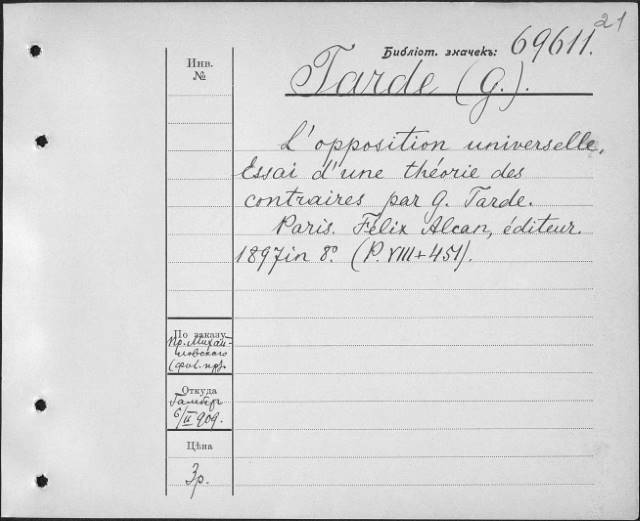 21
Библіот. значекъ: 69611.
Инв.
№
Tarde (G.).
L'opposition universelle.
Essai d'une théorie des
contraires par G. Tarde.
Paris. Félix Alcan, éditeur.
1897 in 8º. (P. VIII+451).
По заказу
Пр. Михай-
ловскаго
Откуда
6/II 909.
Цѣна
3р.